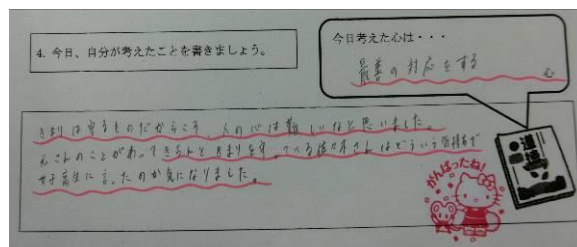 4. 今日、自分が考えたことを書きましょう。
今日考えた心は・・・
最善の対応をする
心
きまりは守るものだからこそ、人の心は難しいなと思いました。
元さんのことがあってきちんときまりを守っている佐々木さんはどういう気持ちで
女子高生に言ったのか気になりました。
がんばったね!
道徳